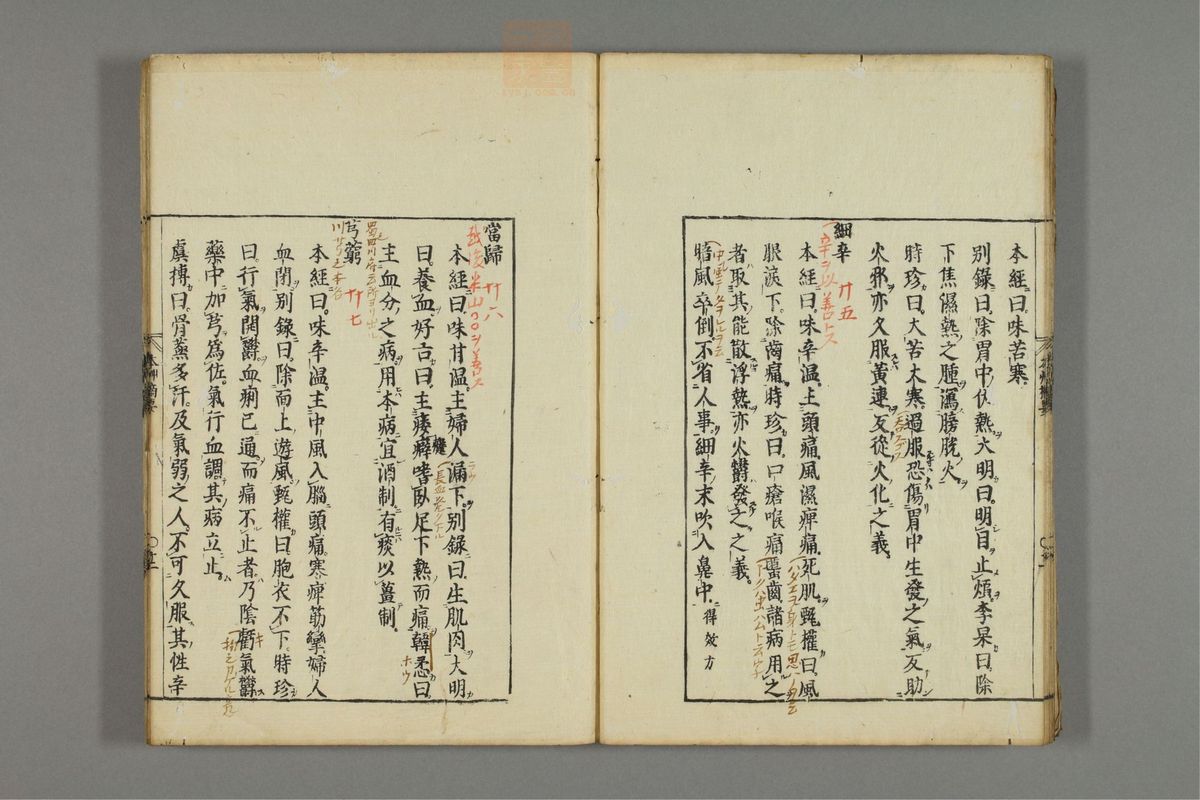 本經曰味苦寒
別錄曰除胃中伏熱大明曰明目止煩李杲曰除
下焦濕熱之腫瀉膀胱火
時珍曰大苦大寒過服恐傷胃中生發之氣反助
火邪亦久服黃連反從火化之義
細辛
廿五
辛ヲ以善トス
本經曰味辛溫主頭痛風濕痺痛死肌甄權曰風
眼淚下除齒痛時珍曰口瘡喉痛䘌齒諸病用之
者取其能散浮熱亦火欝發之之義
暗風卒倒不省人事細辛末吹入鼻中 得效方
當歸
廿六
本經曰味甘溫主婦人漏下別錄曰生肌肉大明
曰養血好古曰主痿癖嗜臥足下熱而痛韓悉曰
主血分之病用本病宜酒制有痰以薑制
芎藭
廿七
本經曰味辛溫主中風入腦頭痛寒痺筋攣婦人
血閉別錄曰除面上遊風甄權曰胞衣不下時珍
曰行氣開欝血痢已通而痛不止者乃陰虧氣欝
藥中加芎爲佐氣行血調其病立止
虞摶曰骨蒸多汗及氣弱之人不可久服其性辛